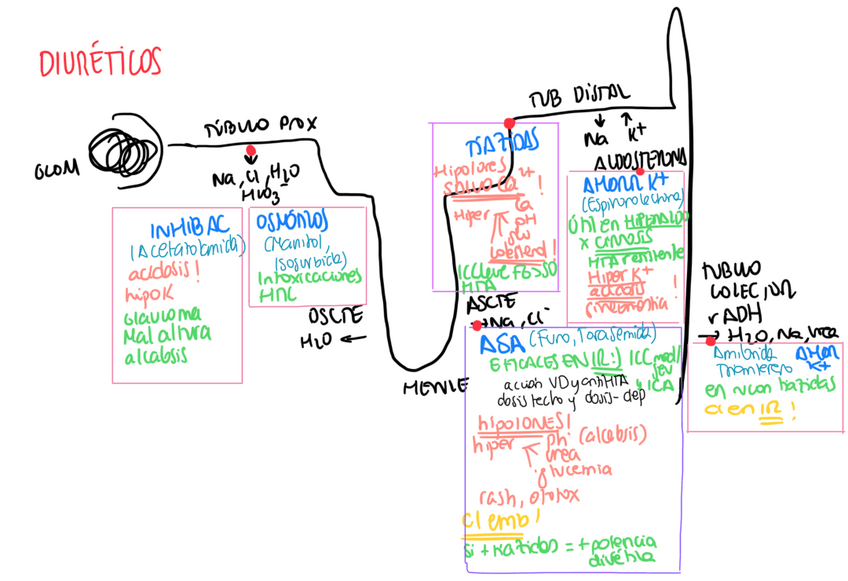 DIURÉTICOS
GLOM
TÚBULO PROX
Na, Cl, H2O
HCO3-
INHIB AC
(Acetazolamida)
acidosis!
hipoK
Glaucoma
Mal altura
alcalosis
OSMÓTICOS
(Manitol,
Isosorbida)
Intoxicaciones
HTIC
H2O ←
HENLE
TUB DISTAL
Na K+
ALDOSTERONA
TIAZIDAS
Hipolores
SALVO Ca2+!
Hiper
Ca
pH
glu
colesterol!
ICC leve FG>50
HTA
AHORR K+
(Espironolactona)
Útil en HIPERALDO
x cirrosis
HTA resistente
Hiper K+
acidosis
ginecomastia!
ASCTE
→ Na, Cl-
ASA (Furo, Torasemida)
EFICACES EN IR:) ICC mod/sev
y ICA
acción VD y antiHTA
dosis techo y dosis-dep
hipoIONES!
hiper ph (alcalosis)
urea
glucemia
rash, ototox
CI emb!
si + tiazidas = + potencia
diurética
TÚBULO
COLEC, UR
r ADH
→ H2O, Na, urea
Amilorida AHORR
Triamtereno K+
en u con tiazidas
CI en IR!